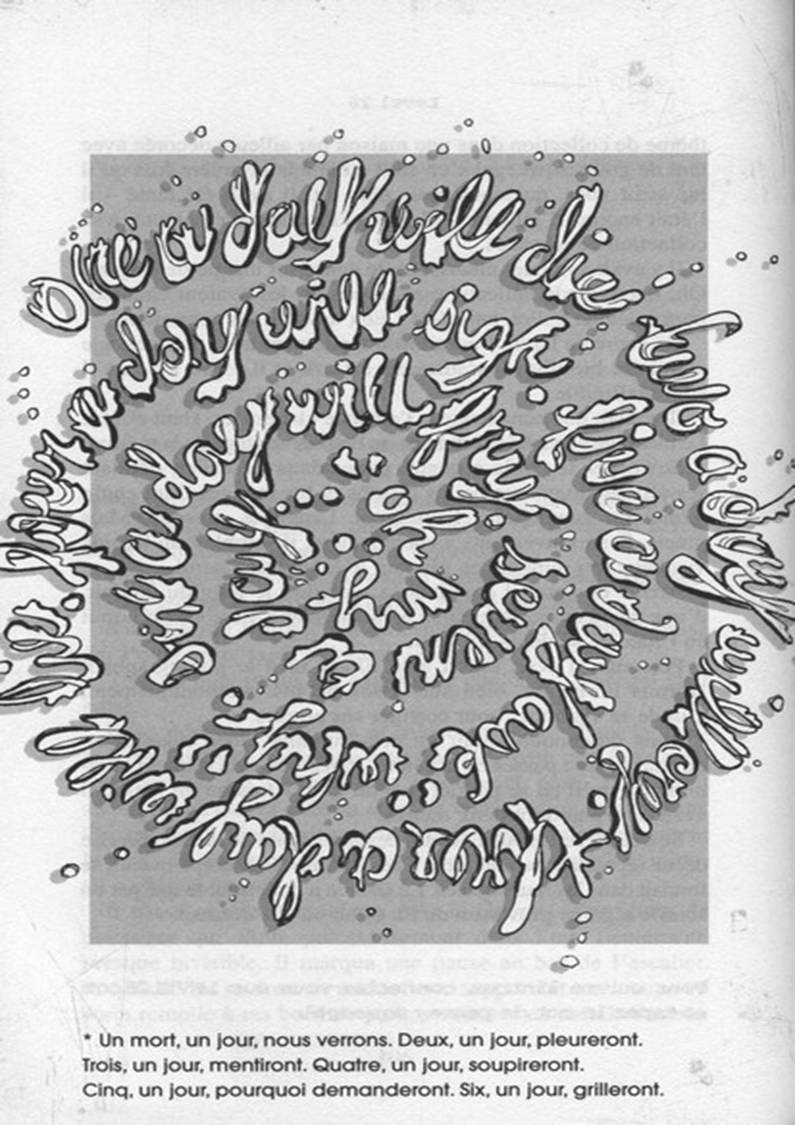 One a day will die
two a day will cry
three a day will lie
four a day will sigh
five a day ask why
six a day will fry
seven a day... oh my
* Un mort, un jour, nous verrons. Deux, un jour, pleureront.
Trois, un jour, mentiront. Quatre, un jour, soupireront.
Cinq, un jour, pourquoi demanderont. Six, un jour, grilleront.